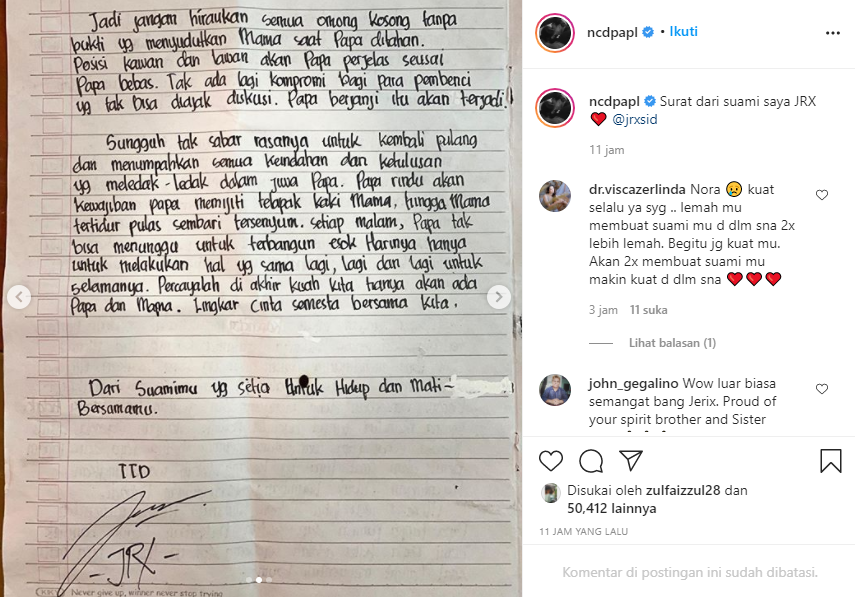 Jadi jangan hiraukan semua omong kosong tanpa
bukti yg menyudutkan Mama saat Papa ditahan.
Posisi kawan dan lawan akan Papa perjelas seusai
Papa bebas. Tak ada lagi kompromi bagi para pembenci
yg tak bisa diajak diskusi. Papa berjanji itu akan terjadi!
Sungguh tak sabar rasanya untuk kembali pulang
dan menumpahkan semua keindahan dan ketulusan
yg meledak-ledak dalam jiwa Papa. Papa rindu akan
kewajiban papa memijiti telapak kaki Mama, hingga Mama
tertidur pulas sembari tersenyum. setiap malam, Papa tak
bisa menunggu untuk terbangun esok Harinya hanya
untuk melakukan hal yg sama lagi, lagi dan lagi untuk
selamanya. Percayalah di akhir kisah kita hanya akan ada
Papa dan Mama. Lingkar Cinta semesta bersama kita.
Dari Suamimu yg setia Untuk Hidup dan Mati-
Bersamamu.
TTD
-JRX-
KKY Never give up, winner never stop trying
ncdpapl • Ikuti
ncdpapl Surat dari suami saya JRX
❤️ @jrxsid
11 jam
dr.viscazerlinda Nora 😢 kuat
selalu ya syg .. lemah mu
membuat suami mu d dlm sna 2x
lebih lemah. Begitu jg kuat mu.
Akan 2x membuat suami mu
makin kuat d dlm sna ❤️❤️❤️
3 jam 11 suka
Lihat balasan (1)
john_gegalino Wow luar biasa
semangat bang Jerix. Proud of
your spirit brother and Sister
Disukai oleh zulfaizzul28 dan
50,412 lainnya
11 JAM YANG LALU
Komentar di postingan ini sudah dibatasi.